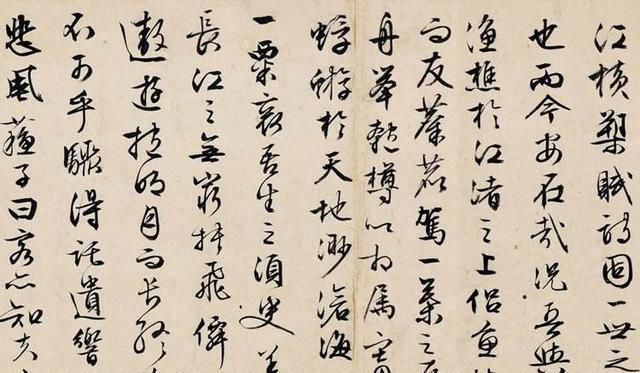 江橫槊賦詩固一世之
也而今安在哉況吾與
漁樵於江渚之上侶魚
而友麋鹿駕一葉之
舟舉匏樽以相属寄
蜉蝣於天地渺滄海
一粟哀吾生之須臾羡
長江之無窮挾飛僊
遨遊抱明月而長終
不可乎驟得託遺響
悲風蘇子曰客亦知夫